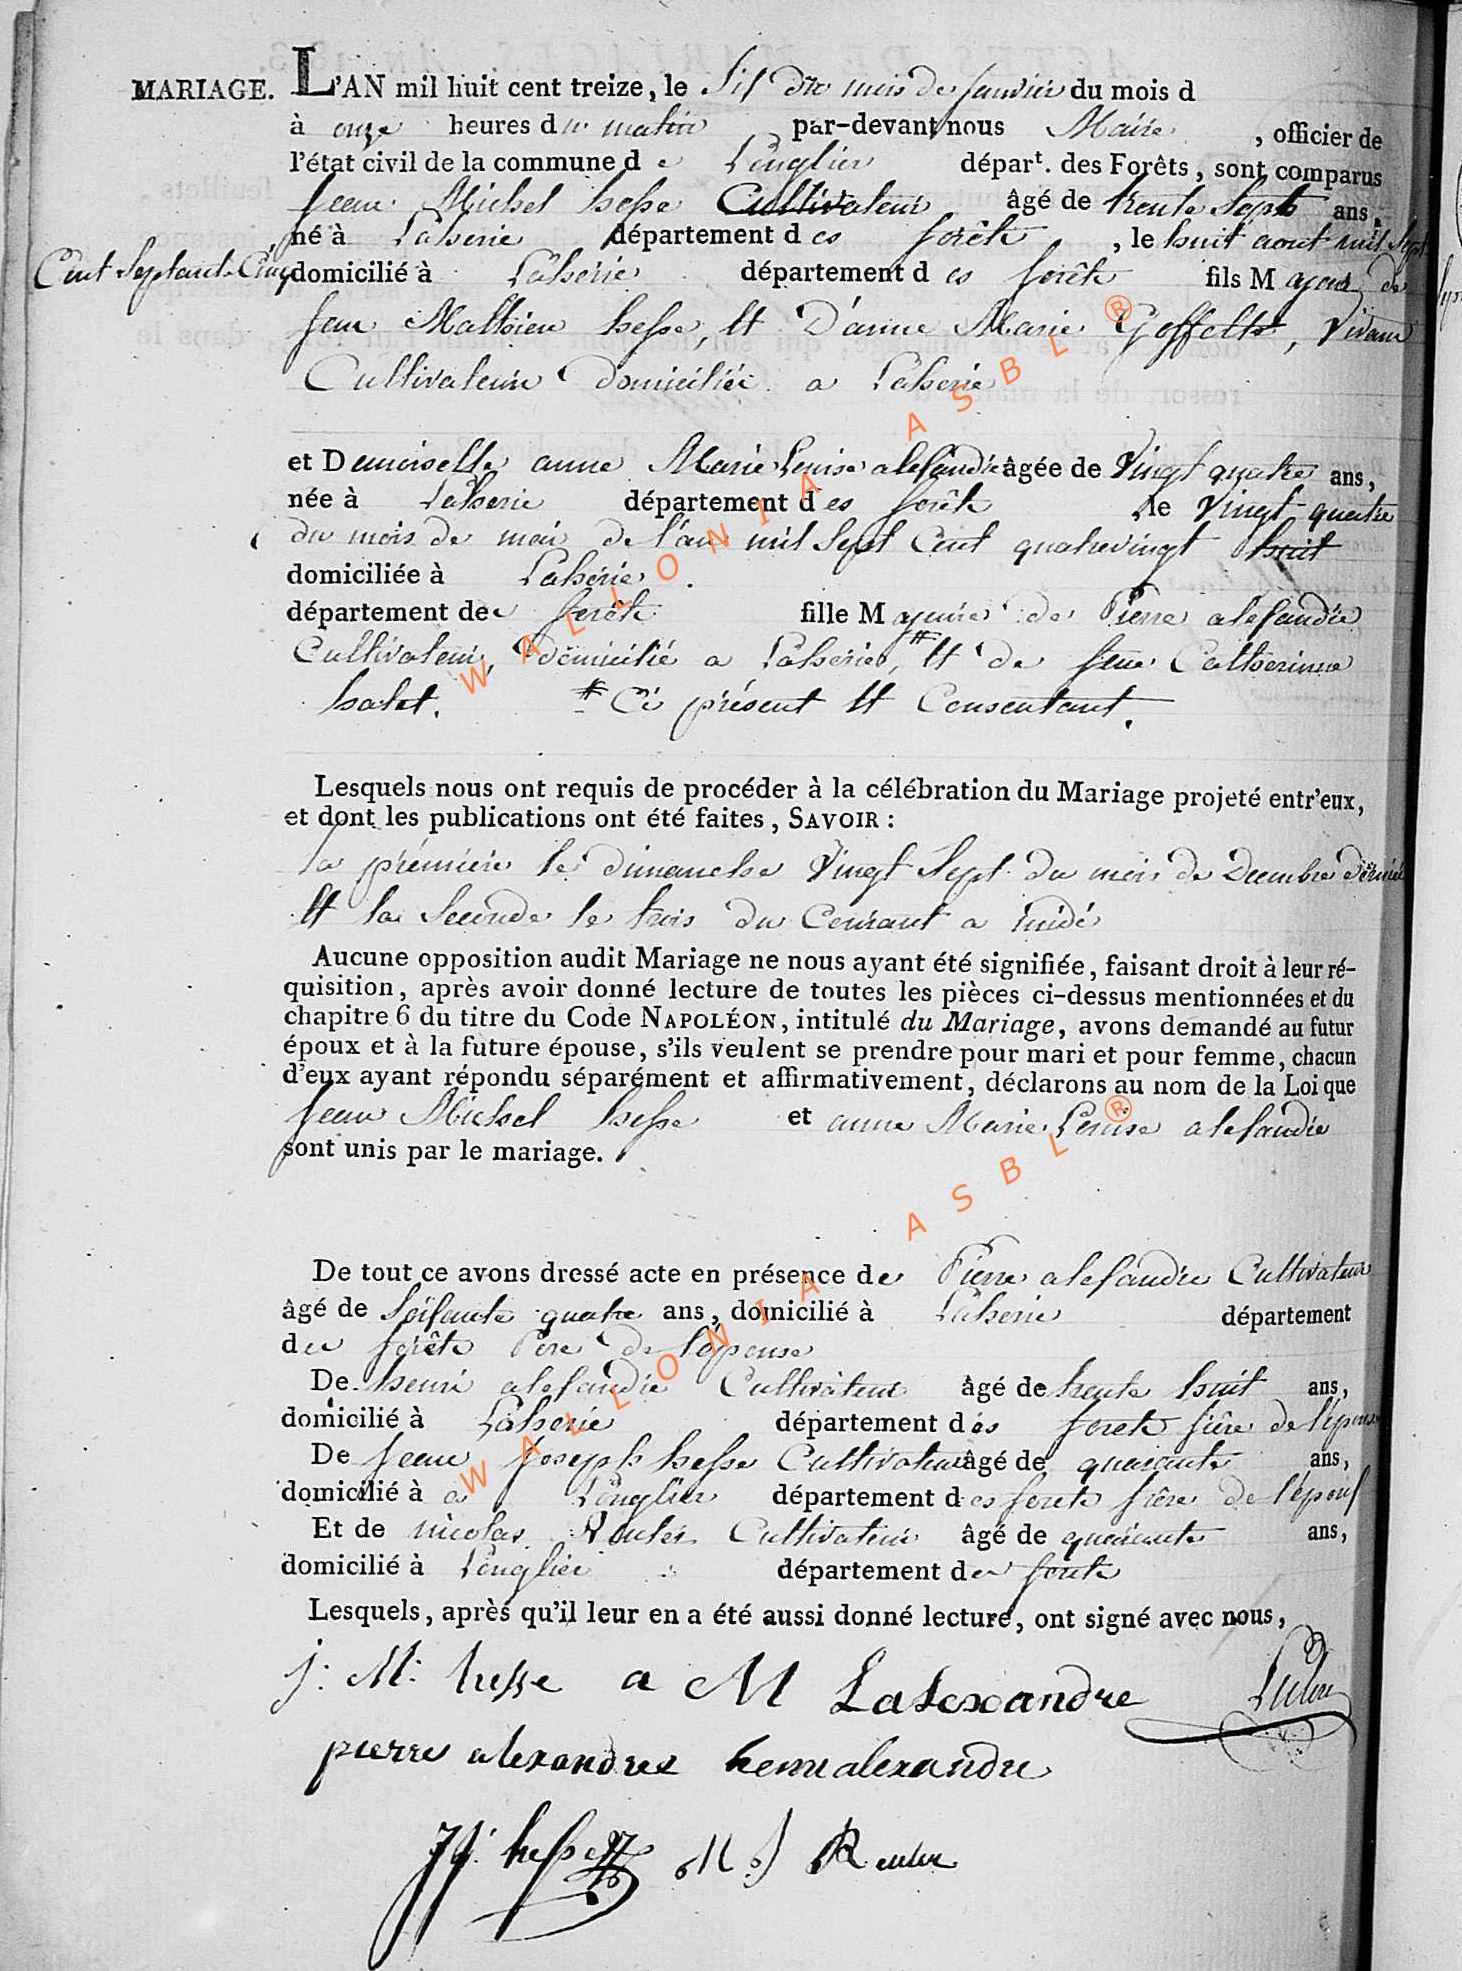 MARIAGE. L'AN mil huit cent treize, le Six du mois de Janvier du mois d
à onze heures du matin par-devant nous Maire , officier de
l'état civil de la commune de Longlier départ. des Forêts, sont comparus
Jean Michel hesse Cultivateur âgé de trente Sept ans,
né à Laherie département des forêts , le huit aout mil Sept
Cent Septante Cinq domicilié à Laherie département des forêts fils Majeur de
Jean Mathieu hesse, et D'anne Marie Goffette, vivant
Cultivateur domicilié a Laherie
et Demoiselle anne Marie Louise alexandre âgée de Vingt quatre ans,
née à Laherie département des forêts le Vingt quatre
du mois de mai de l'an mil Sept Cent quatrevingt huit
domiciliée à Laherie
département des forêts fille Majeure de Pierre alexandre
Cultivateur, domicilié a Laherie, # et de feue Catherinne
halet. # Ci présent et Consentant.
Lesquels nous ont requis de procéder à la célébration du Mariage projeté entr'eux,
et dont les publications ont été faites, SAVOIR :
la prémiere le dimanche Vingt Sept du mois de Decembre dernier
et la Seconde le trois du Courant a midi
Aucune opposition audit Mariage ne nous ayant été signifiée, faisant droit à leur ré-
quisition, après avoir donné lecture de toutes les pièces ci-dessus mentionnées et du
chapitre 6 du titre du Code NAPOLÉON, intitulé du Mariage, avons demandé au futur
époux et à la future épouse, s'ils veulent se prendre pour mari et pour femme, chacun
d'eux ayant répondu séparément et affirmativement, déclarons au nom de la Loi que
Jean Michel hesse et anne Marie Louise alexandre
sont unis par le mariage.
De tout ce avons dressé acte en présence de Pierre alexandre Cultivateur
âgé de Soixante quatre ans, domicilié à Laherie département
des forêts Pere de l'épouse
De henri alexandre Cultivateur âgé de trente huit ans,
domicilié à Laherie département des forets frère de l'épouse
De Jean Joseph hesse Cultivateur âgé de quarante ans,
domicilié à a Longlier département des forets frère de l'épou
Et de nicolas Cultivateur âgé de quarante ans,
domicilié à Longlier département des forets
Lesquels, après qu'il leur en a été aussi donné lecture, ont signé avec nous,
j: M: hesse a M Lalexandre
pierre alexandre henri alexandre
JJ: hesse N J
WALLONIA ASBL ®
WALLONIA ASBL ®